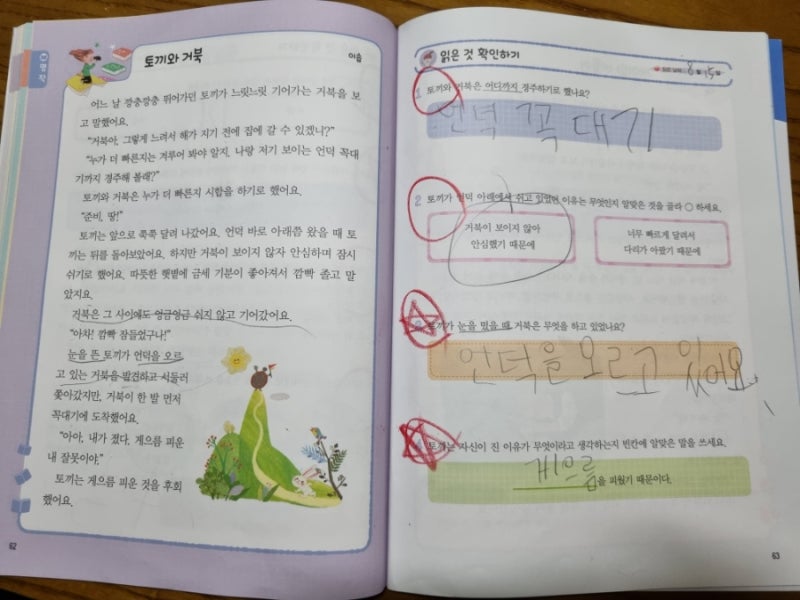 명작
토끼와 거북
이솝
어느 날 깡충깡충 뛰어가던 토끼가 느릿느릿 기어가는 거북을 보
고 말했어요.
"거북아, 그렇게 느려서 해가 지기 전에 집에 갈 수 있겠니?"
"누가 더 빠른지는 겨루어 봐야 알지. 나랑 저기 보이는 언덕 꼭대
기까지 경주해 볼래?"
토끼와 거북은 누가 더 빠른지 시합을 하기로 했어요.
"준비, 땅!"
토끼는 앞으로 쭉쭉 달려 나갔어요. 언덕 바로 아래쯤 왔을 때 토
끼는 뒤를 돌아보았어요. 하지만 거북이 보이지 않자 안심하며 잠시
쉬기로 했어요. 따뜻한 햇볕에 금세 기분이 좋아져서 깜빡 졸고 말
았지요.
거북은 그 사이에도 엉금엉금 쉬지 않고 기어갔어요.
"아차! 깜빡 잠들었구나!"
눈을 뜬 토끼가 언덕을 오르
고 있는 거북을 발견하고 서둘러
쫓아갔지만, 거북이 한 발 먼저
꼭대기에 도착했어요.
"아아, 내가 졌다. 게으름 피운
내 잘못이야."
토끼는 게으름 피운 것을 후회
했어요.
62
읽은 것 확인하기
8월 15일
1 토끼와 거북은 어디까지 경주하기로 했나요?
언덕 꼭대기
2 토끼가 언덕 아래에서 쉬고 있었던 이유는 무엇인지 알맞은 것을 골라 ○ 하세요.
거북이 보이지 않아
안심했기 때문에
너무 빠르게 달려서
다리가 아팠기 때문에
3 토끼가 눈을 떴을 때 거북은 무엇을 하고 있었나요?
언덕을 오르고 있어요.
4 토끼는 자신이 진 이유가 무엇이라고 생각하는지 빈칸에 알맞은 말을 쓰세요.
게으름을 피웠기 때문이다.
63